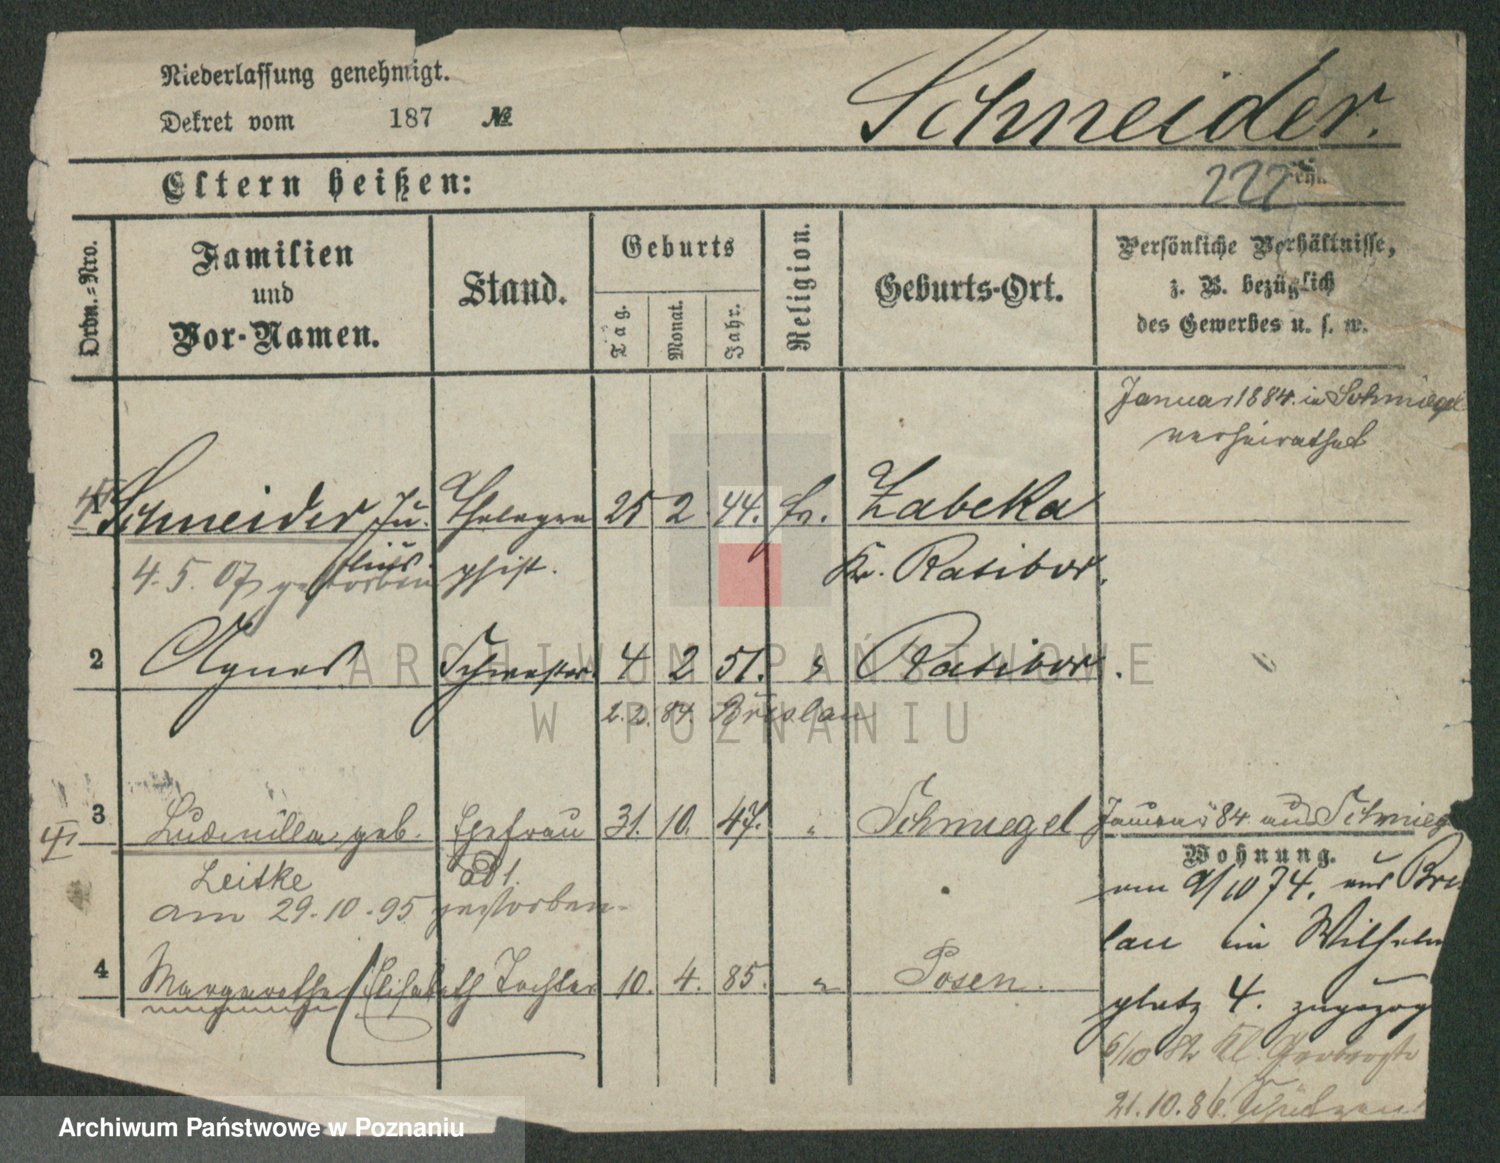 Niederlassung genehmigt.
Dekret vom 187 №
Schneider.
Eltern heißen:
222
Ordn.-Nro.
Familien
und
Vor-Namen.
Stand.
Geburts
Tag.
Monat.
Jahr.
Religion.
Geburts-Ort.
Persönliche Verhältnisse,
z. B. bezüglich
des Gewerbes u. s. w.
Januar 1884. in Schmiegel
verheirathet
1 Schneider Ju- Thelegra 25 2 44. Ev. Zabelka
lius phist. Kr. Ratibor.
4. 5. 07 gestorben
2 Agnes Schwester 4 2 51. " Ratibor.
2. 2. 84. Breslau
3 Ludmilla geb. Ehefrau 31. 10. 47. " Schmiegel Januar 84 aus Schmieg
Leitke
am 29.10.95 gestorben.
Wohnung.
am 9/10 74. aus Bres
lau im Wilhelm
platz 4. zugezog
4 Margarethe Elisabeth Tochter 10. 4. 85. " Posen.
6/10 82 Kl.
21.10.86. Schützen
ARCHIWUM PAŃSTWOWE
W POZNANIU
Archiwum Państwowe w Poznaniu